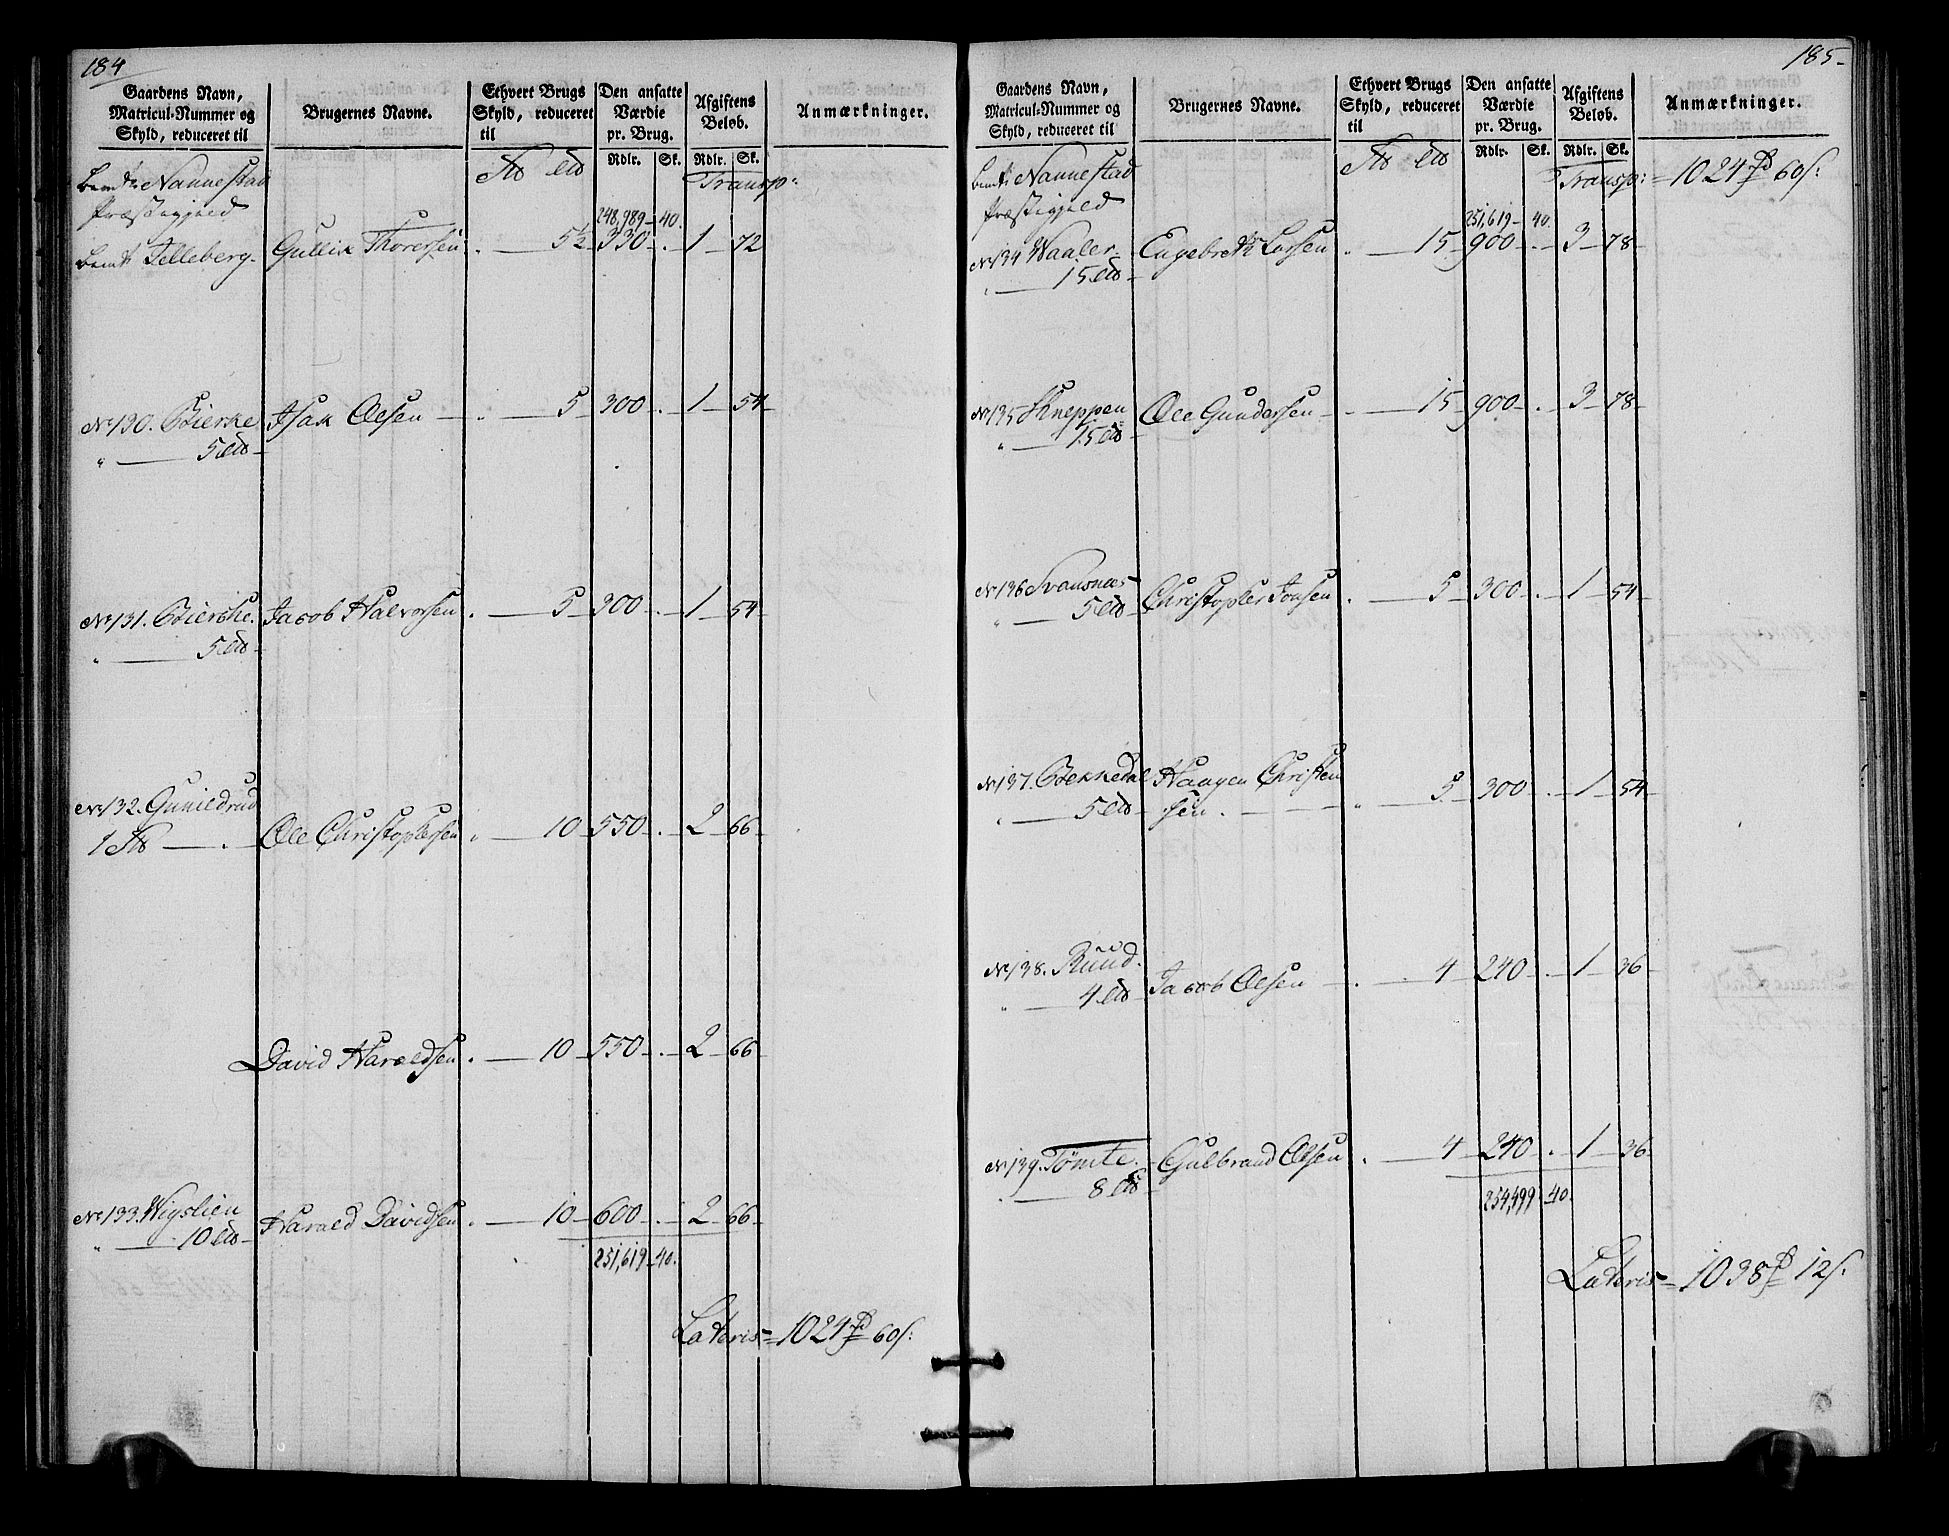 184
Gaardens Navn, Matricul-Nummer og Skyld, reduceret til
Brugernes Navne.
Ethvert Brugs Skyld, reduceret til
Den ansatte Værdie pr. Brug.
Afgiftens Beløb.
Anmærkninger.
Rdlr. Sk. Rdlr. Sk.
Transp:
Nannestad
Præstegjeld
248,989 - 40.
Gullik Thorersen . - 5½ 330 - . - 1 - 72
No 130. Bierke Isak Olsen - " - 5 - 300 - . - 1 - 54
" - 5
No 131. Bierke. Jacob Halvorsen . - 5 - 300 - . - 1 - 54
" - 5
No 132. Gunildrud
1 - . - Ole Christophersen " - 10 - 550 - . - 2 - 66
David Haraldsen . - 10 - 550 - . - 2 - 66
No 133. Wigslien Harald Davidsen . - 10 - 600 - . - 2 - 66
" - 10
251,619 - 40.
Lateris = 1024 60
185
Gaardens Navn, Matricul-Nummer og Skyld, reduceret til
Brugernes Navne.
Ethvert Brugs Skyld, reduceret til
Den ansatte Værdie pr. Brug.
Afgiftens Beløb.
Anmærkninger.
Rdlr. Sk. Rdlr. Sk.
Transp: = 1024 60
Nannestad
Præstegjeld
251,619 - 40.
No 134 Waaler Engebreth Larsen . - 15 - 900 - . - 3 - 78
" - 15
No 135 Ole Gundersen - . - 15 - 900 - . - 3 - 78
" - 15
No 136 Christopher Jonsen . - 5 - 300 - . - 1 - 54
" - 5
No 137. Bekkedal Haagen Christen
" - 5 sen . - " - 5 - 300 - . - 1 - 54
No 138. Ruud. Jacob Olsen - . - 4 - 240 - . - 1 - 36
" - 4
No 139. Tömte. Gulbrand Olsen . - 4 - 240 . - 1 - 36
. - 8
254,499 40.
Lateris = 1038 12